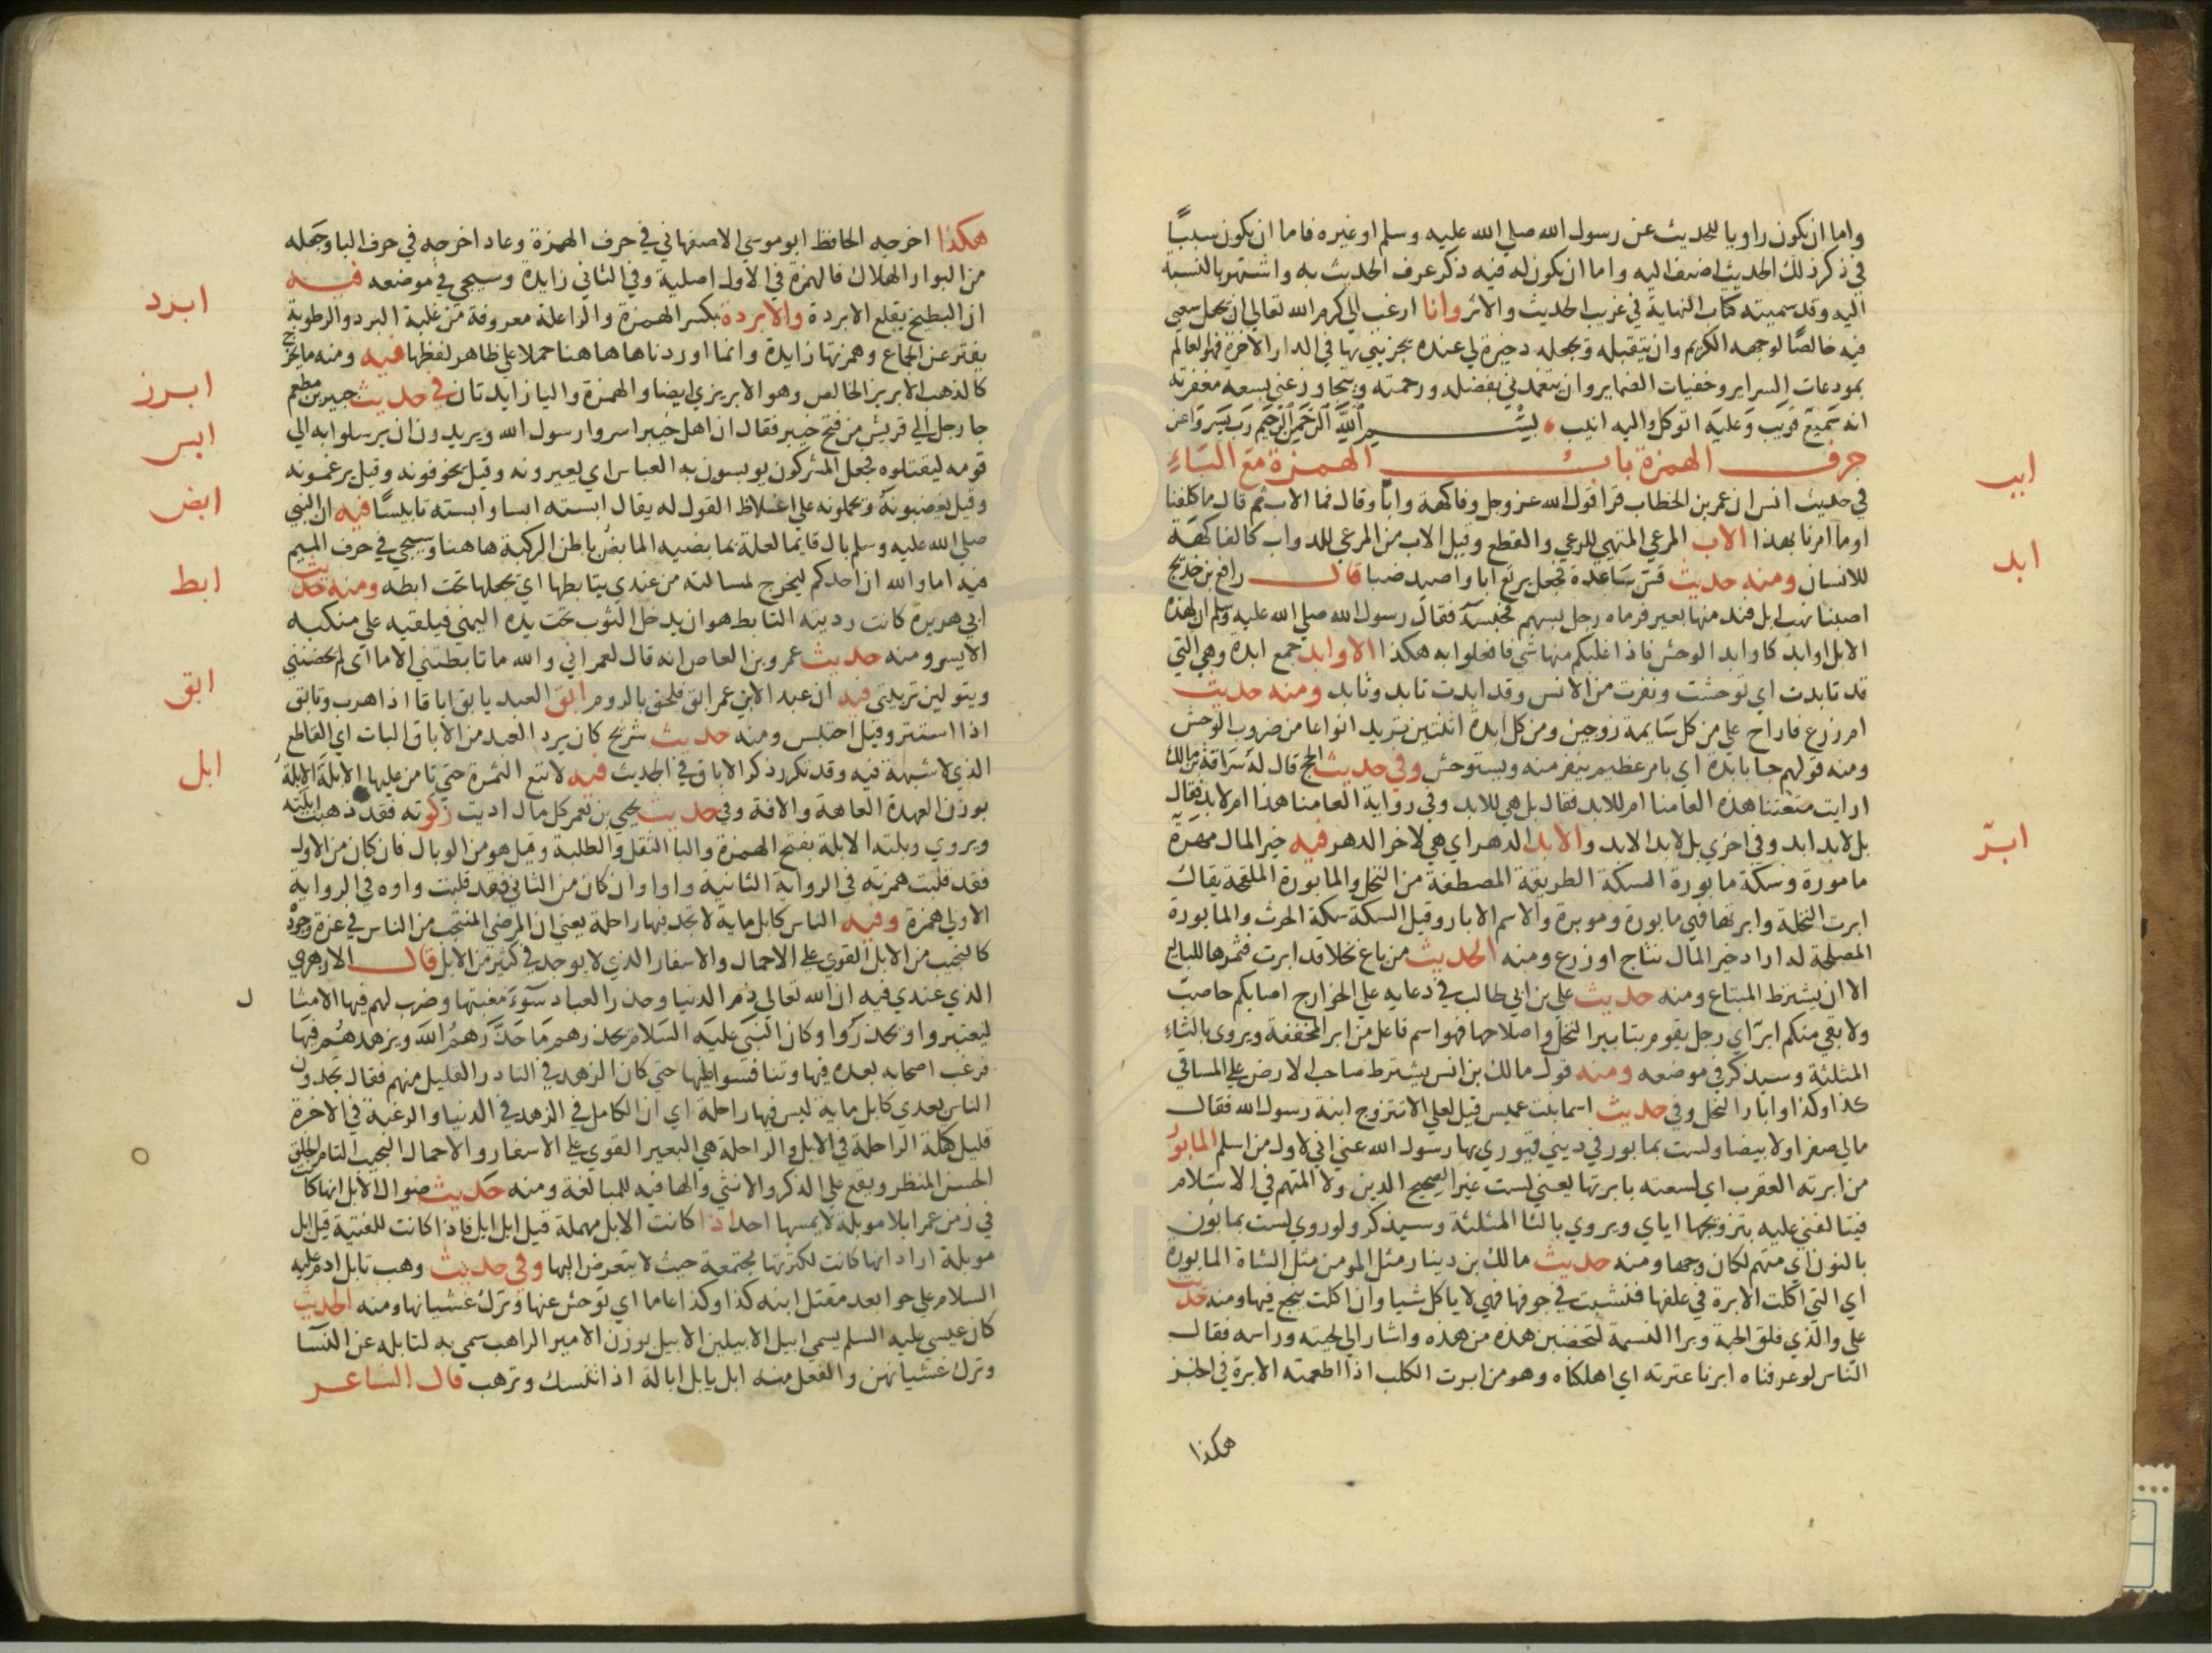 واما ان يكون راويا للحديث عن رسول الله صلي الله عليه وسلم او غيره فاما ان يكون سببًا
في ذكر ذلك الحديث اضيف اليه واما ان يكون له فيه ذكر عرف الحديث به واشتهر بالنسبة
اليه وقد سميته كتاب النهاية في غريب الحديث والاثر وانا ارغب الي كرم الله تعالي ان يجعل سعيي
فيه خالصًا لوجهه الكريم وان يتقبله ويجعله ذخيرة لي عنده يجزيني بها في الدار الاخرة فهو العالم
بمودعات السراير وخفيات الضماير وان يتغمدني بفضله ورحمته ويتجاوز عني بسعة مغفرته
انه سميع قريب وعليه اتوكل واليه انيب بسم الله الرحمن الرحيم رب يسر واعن
حرف الهمزة باب الهمزة مع الباء
ابب
في حديث انس ان عمر بن الخطاب قرا قول الله عز وجل وفاكهة وابا وقال فما الاب ثم قال ما كلفنا
اوما امرنا بهذا الاب المرعي المتهيي للرعي والقطع وقيل الاب من المرعي للدواب كالفاكهة
ابد
للانسان ومنه حديث قس بن ساعدة فجعل يرتع ابا واصيد ضبا قال رافع بن خديج
اصبنا نهب ابل فند منها بعير فرماه رجل بسهم فحبسه فقال رسول الله صلي الله عليه وسلم ان لهذه
الابل اوابد كاوابد الوحش فاذا غلبكم منها شي فافعلوا به هكذا الاوابد جمع ابدة وهي التي
قد تابدت اي توحشت ونفرت من الانس وقد ابدت تابد وتابد ومنه حديث
ام زرع فاراح علي من كل سايمة زوجين ومن كل ابدة اثنتين تريد انواعا من ضروب الوحش
ومنه قولهم جا بابدة اي بامر عظيم ينفر منه ويستوحش وفي حديث الحج قال له سراقة بن مالك
ارايت متعتنا هذه العامنا ام للابد فقال بل هي للابد وفي رواية العامنا هذا ام لابد فقال
ابر
بل لابد ابد وفي اخري بل لابد الابد والابد الدهر اي هي لاخر الدهر فيه خير المال مهرة
مامورة وسكة مابورة السكة الطريقة المصطفة من النخل والمابورة الملقحة يقال
ابرت النخلة وابرتها فهي مابورة وموبرة والاسم الابار وقيل السكة سكة الحرث والمابورة
المصلحة له اراد خير المال نتاج او زرع ومنه الحديث من باع نخلا قد ابرت فثمرها للبايع
الا ان يشترط المبتاع ومنه حديث علي بن ابي طالب في دعايه علي الخوارج اصابكم حاصب
ولا بقي منكم ابر اي رجل يقوم بتابير النخل واصلاحها فهو اسم فاعل من ابر المخففة ويروي بالثاء
المثلثة وسيذكر في موضعه ومنه قول مالك بن انس يشترط صاحب الارض علي المساقي
كذا وكذا وابار النخل وفي حديث اسما بنت عميس قيل لعلي الا تتزوج ابنة رسول الله فقال
مالي صفرا ولا بيضا ولست بمابور في ديني فيوري بها رسول الله عني اني لاول من اسلم المابور
من ابرته العقرب اي لسعته بابرتها يعني لست غير الصحيح الدين ولا المتهم في الاسلام
فيتالفني عليه بتزويجها اياي ويروي بالثا المثلثة وسيذكر ولو روي لست بمابون
بالنون اي متهم لكان وجها ومنه حديث مالك بن دينار مثل المومن مثل الشاة المابورة
اي التي اكلت الابرة في علفها فنشبت في جوفها فهي لا ياكل شيا وان اكلت لم ينجع فيها ومنه حديث
علي والذي فلق الحبة وبرا النسمة لتخضبن هذه من هذه واشار الي لحيته وراسه فقال
الناس لو عرفناه ابرنا عترته اي اهلكناه وهو من ابرت الكلب اذا اطعمته الابرة في الخبز
هكذا
هكذا اخرجه الحافظ ابو موسي الاصفهاني في حرف الهمزة وعاد اخرجه في حرف البا وجعله
من البوار الهلاك فالهمزة في الاول اصلية وفي الثاني زايدة وسيجي في موضعه فيه
ابرد
ان البطيخ يقلع الابردة والابردة بكسر الهمزة والرا علة معروفة من غلبة البرد والرطوبة
يفتر عن الجماع وهمزتها زايدة وانما اوردناها هاهنا حملا علي ظاهر لفظها فيه ومنه ما يخرج
ابرز
كالذهب الابريز الخالص وهو الابريزي ايضا والهمزة واليا زايدتان في حديث جبير بن مطعم
ابس
جا رجل الي قريش من فتح خيبر فقال ان اهل خيبر اسروا رسول الله ويريدون ان يرسلوا به الي
قومه ليقتلوه فجعل المشركون يوبسون به العباس اي يعيرونه وقيل يخوفونه وقيل يرغمونه
ابض
وقيل يغضبونه ويحملونه علي اغلاظ القول له يقال ابسته ابسا وابسته تابيسًا فيه ان النبي
صلي الله عليه وسلم بال قايما لعلة بمابضيه المابض باطن الركبة هاهنا وسيجي في حرف الميم
ابط
فيه اما والله ان احدكم ليخرج لمسالته من عندي يتابطها اي يجعلها تحت ابطه ومنه حديث
ابي هريرة كانت رديته التابط هو ان يدخل الثوب تحت يده اليمني فيلقيه علي منكبه
الايسر ومنه حديث عمرو بن العاص انه قال لعمر اني والله ما تابطتني الاما اي لم يحضنني
ابق
ويتولين تربيتي فيه ان عبد الابن عمر ابق فلحق بالروم ابق العبد يابق اباقا اذا هرب وتابق
اذا استتر وقيل احتبس ومنه حديث شريح كان يرد العبد من الاباق البات اي القاطع
ابل
الذي لا شبهة فيه وقد تكرر ذكر الاباق في الحديث فيه لا تبع الثمرة حتي تامن عليها الابلة الابلة
بوزن العهدة العاهة والافة وفي حديث يحيي بن يعمر كل مال اديت زكوته فقد ذهبت ابلته
ويروي وبلته الابلة بفتح الهمزة والبا الثقل والطلبة وقيل هو من الوبال فان كان من الاول
فقد قلبت همزته في الرواية الثانية واوا وان كان من الثاني فقد قلبت واوه في الرواية
الاولي همزة وفيه الناس كابل ماية لا تجد فيها راحلة يعني ان المرضي المنتجب من الناس في عزة وجوده
كالنجيب من الابل القوي علي الاحمال والاسفار الذي لا يوجد في كثير من الابل قال الازهري
الذي عندي فيه ان الله تعالي ذم الدنيا وحذر العباد سوء مغبتها وضرب لهم فيها الامثا
ل
ليعتبروا ويحذروا وكان النبي عليه السلام يحذرهم ما حذرهم الله ويزهدهم فيها
فرغب اصحابه بعده فيها وتنافسوا عليها حتي كان الزهد في النادر القليل منهم فقال تجدون
الناس بعدي كابل ماية ليس فيها راحلة اي ان الكامل في الزهد في الدنيا والرغبة في الاخرة
قليل كقلة الراحلة في الابل والراحلة هي البعير القوي علي الاسفار والاحمال النجيب التام الخلق
الحسن المنظر ويقع علي الذكر والانثي والها فيه للمبالغة ومنه حديث ضوال الابل انها كانت
في زمن عمر ابلا موبلة لا يمسها احد اذا كانت الابل مهملة قيل ابل ابل فاذا كانت للقنية قيل ابل
موبلة اراد انها كانت لكثرتها مجتمعة حيث لا يتعرض اليها وفي حديث وهب تابل ادم عليه
السلام علي حوا بعد مقتل ابنه كذا وكذا عاما اي توحش عنها وترك غشيانها ومنه الحديث
كان عيسي عليه السلم يسمي ابيل الابيلين الابيل بوزن الامير الراهب سمي به لتابله عن النسا
وترك غشيانهن والفعل منه ابل يابل ابالة اذا تنسك وترهب قال الشاعر